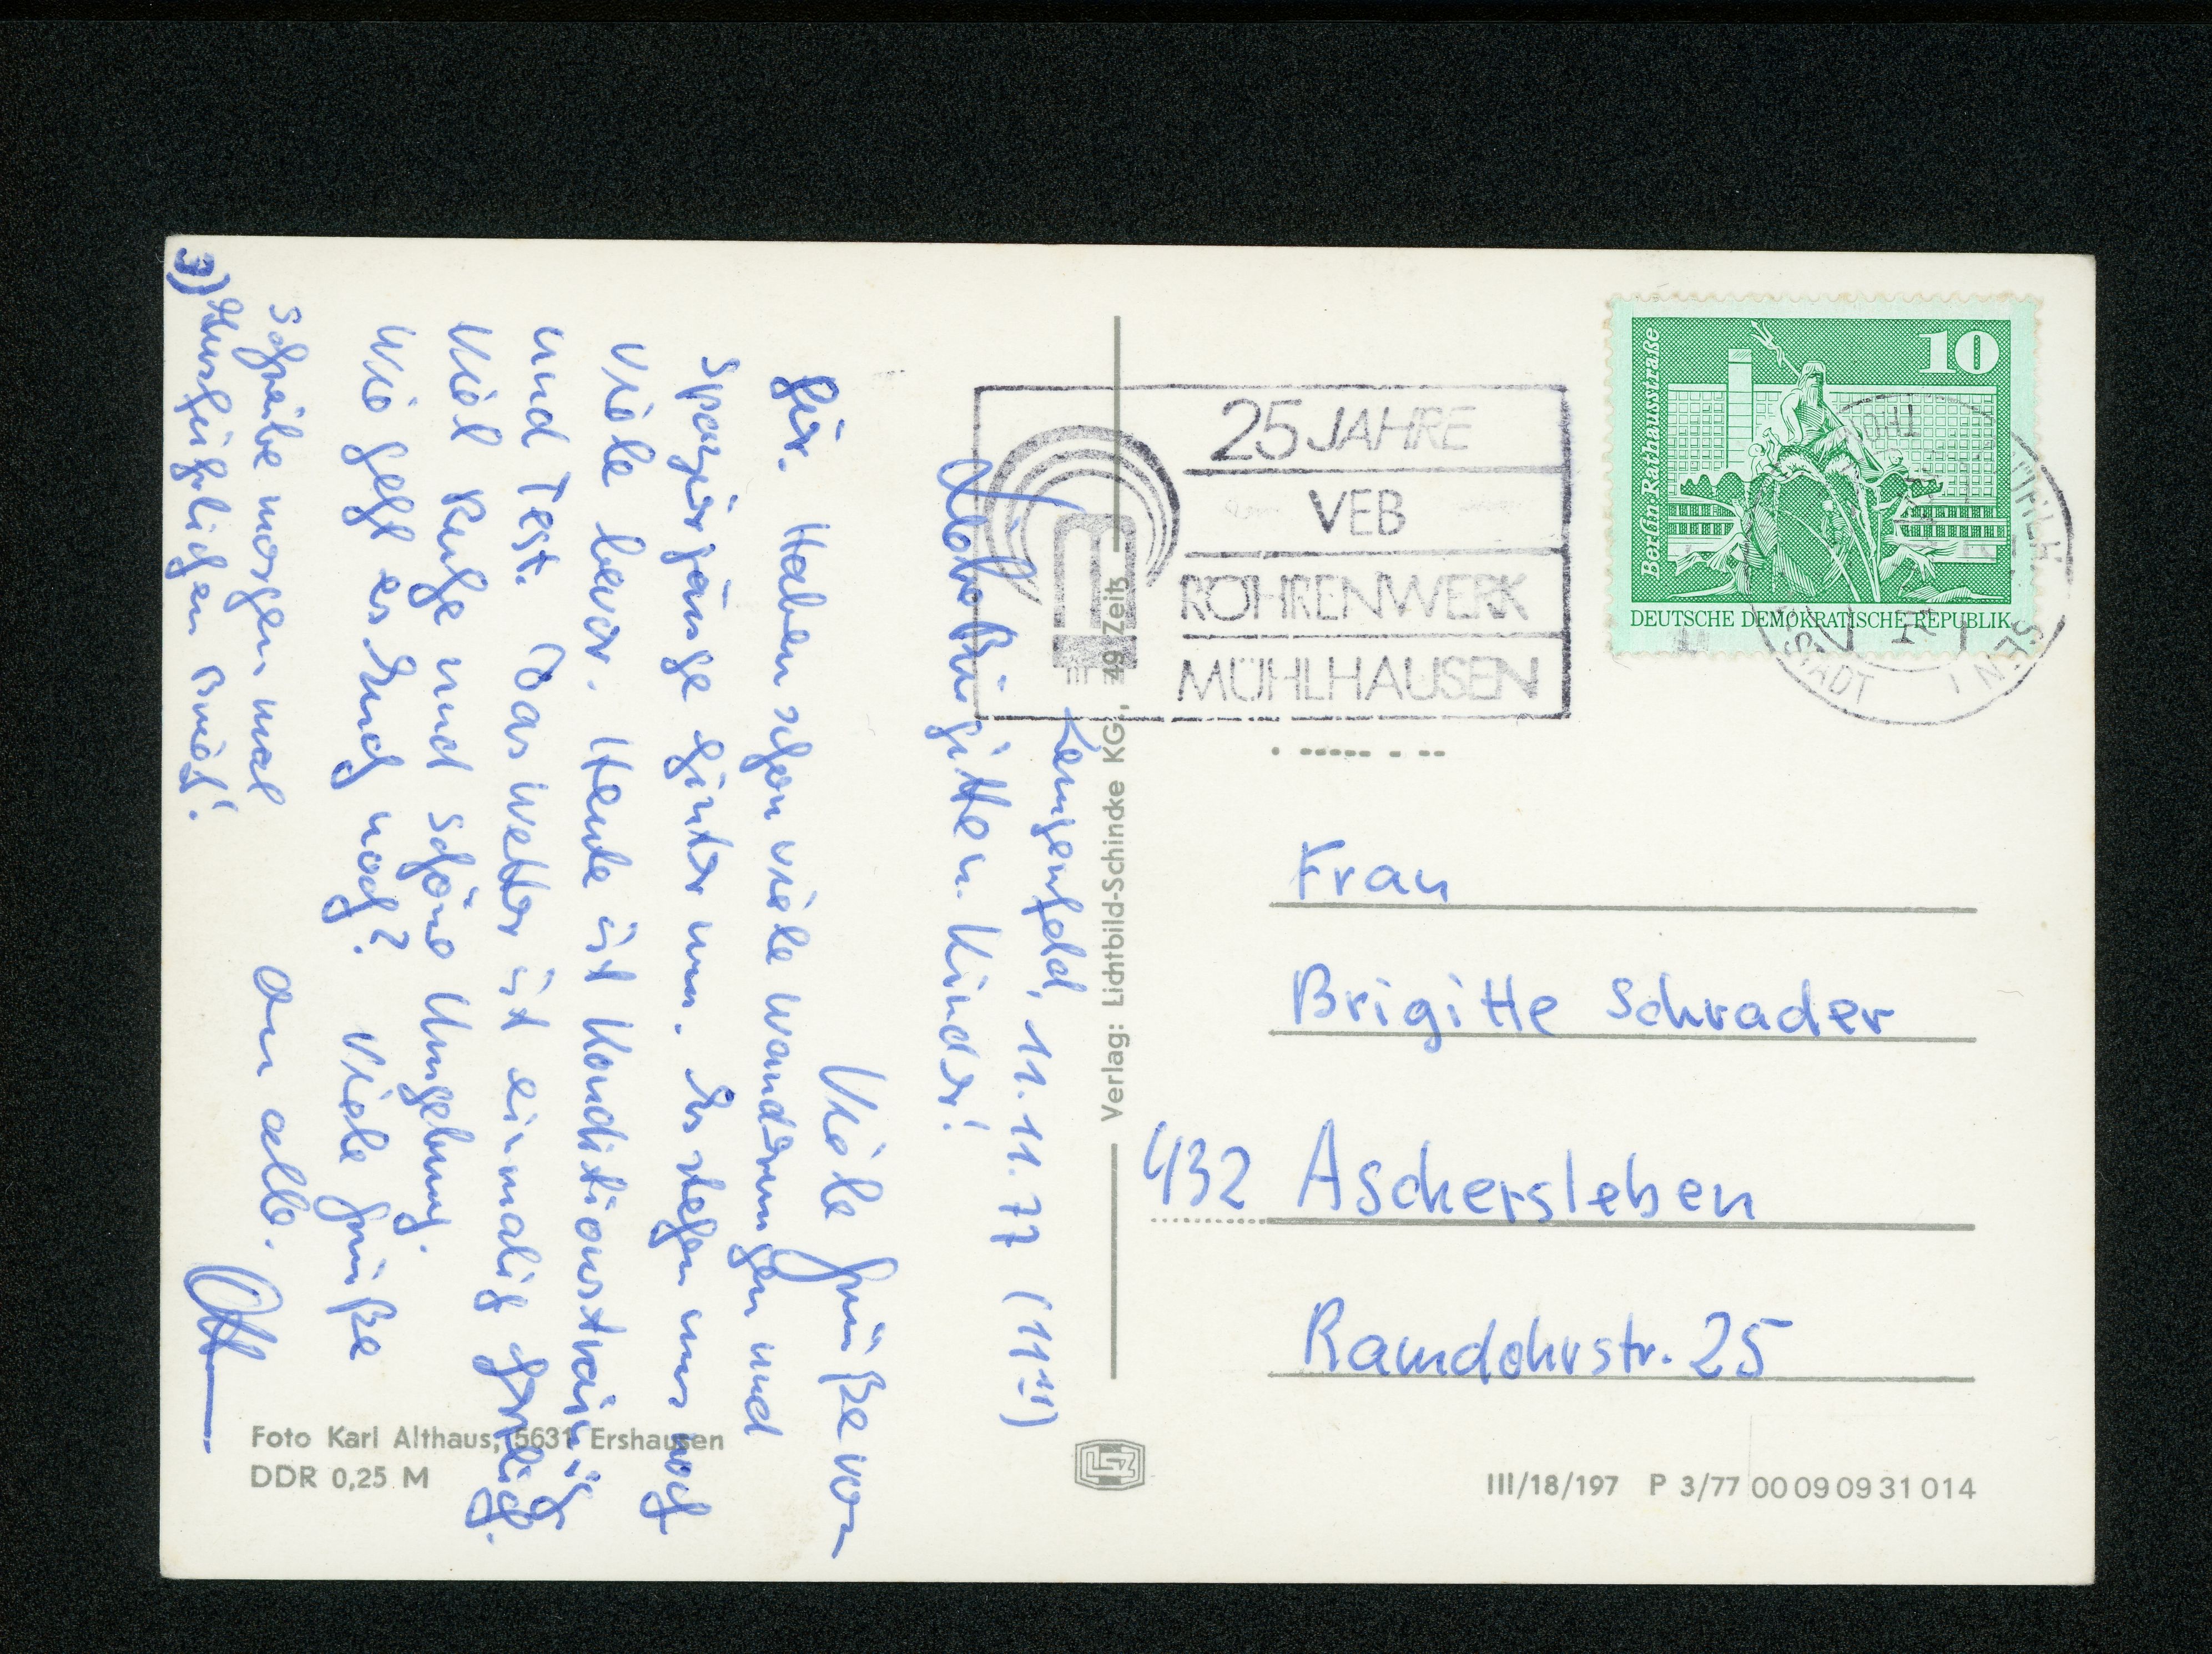 Lengenfeld, 11.11.77 (11¹¹)
Liebe Brigitte u. Kinder!
Viele Grüße von
hier. Haben schon viele Wanderungen und
Spaziergänge hinter uns. Es stehen uns noch
viele bevor. Heute ist Konditionstraining
und Test. Das Wetter ist einmalig herrlich.
Viel Ruhe und schöne Umgebung.
Wie geht es Euch noch? Viele Grüße
an alle.
schreibe morgen mal
ausführlichen Brief!
3)
Foto Karl Althaus, 5631 Ershausen
DDR 0,25 M
Verlag: Lichtbild-Schincke KG., 49 Zeitz
25 JAHRE
VEB
RÖHRENWERK
MÜHLHAUSEN
10
Berlin Rathausstraße
DEUTSCHE DEMOKRATISCHE REPUBLIK
Frau
Brigitte Schrader
432 Aschersleben
Ramdohrstr. 25
III/18/197 P 3/77 00 09 09 31 014